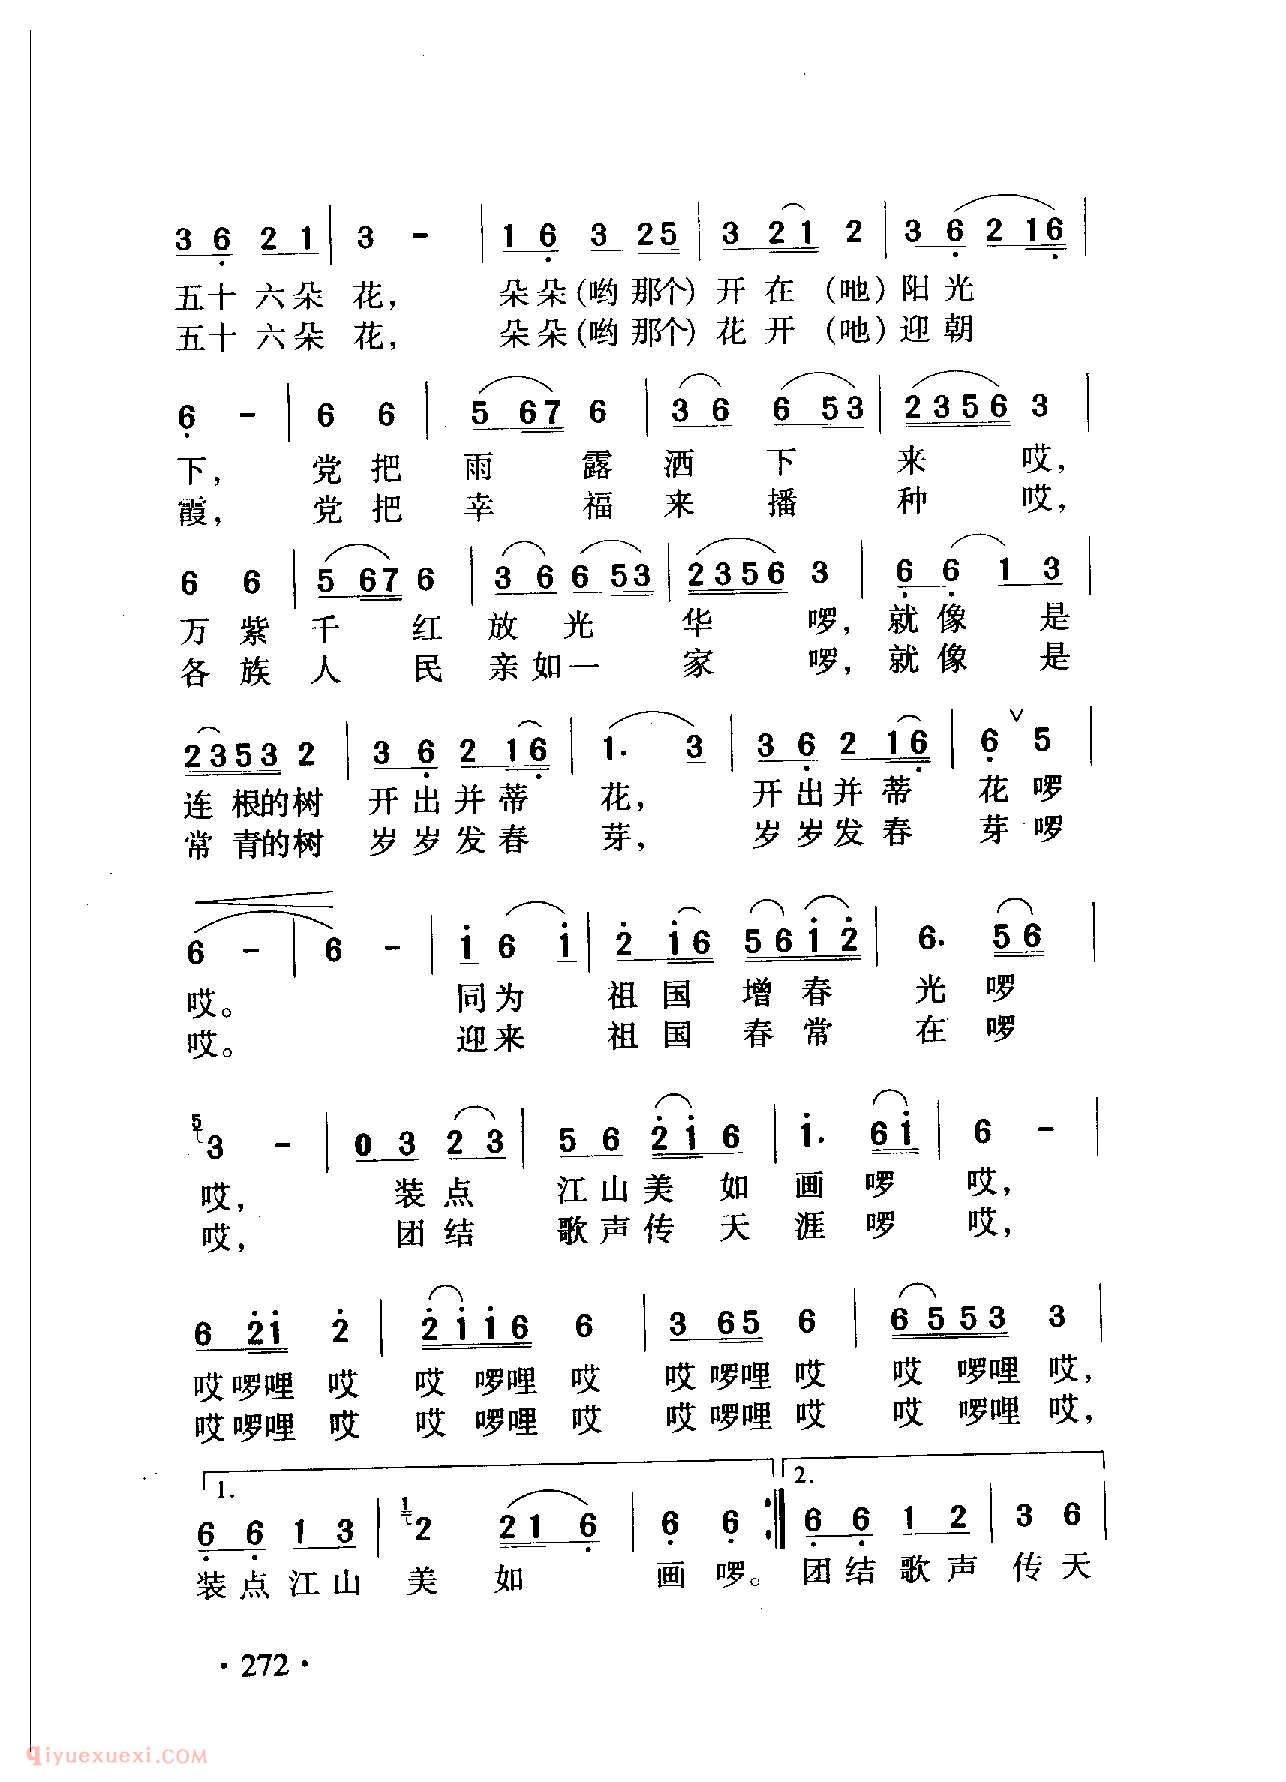 3 6 2 1 | 3 - | 1 6 3 25 | 3 21 2 | 3 6 2 16 |
五十六朵花, 朵朵(哟那个)开在(吔)阳光
五十六朵花, 朵朵(哟那个)花开(吔)迎朝
6 - | 6 6 | 5 67 6 | 3 6 6 53 | 2356 3 |
下, 党把雨露洒下来哎,
霞, 党把幸福来播种哎,
6 6 | 5 67 6 | 3 6 6 53 | 2356 3 | 6 6 1 3 |
万紫千红放光华啰, 就像是
各族人民亲如一家啰, 就像是
2353 2 | 3 6 2 16 | 1. 3 | 3 6 2 16 | 6 ∨ 5 |
连根的树开出并蒂花, 开出并蒂花啰
常青的树岁岁发春芽, 岁岁发春芽啰
6 - | 6 - | 1 6 1 | 2 16 5612 | 6. 56 |
哎。 同为祖国增春光啰
哎。 迎来祖国春常在啰
5 3 - | 0 3 2 3 | 5 6 21 6 | 1. 61 | 6 - |
哎, 装点江山美如画啰哎,
哎, 团结歌声传天涯啰哎,
6 21 2 | 2116 6 | 3 65 6 | 6553 3 |
哎啰哩哎哎啰哩哎哎啰哩哎哎啰哩哎,
哎啰哩哎哎啰哩哎哎啰哩哎哎啰哩哎,
1. 2.
6 6 1 3 | 1 2 21 6 | 6 6 :| 6 6 1 2 | 3 6 |
装点江山美如画啰。团结歌声传天
·272·
qiyuexuexi.COM